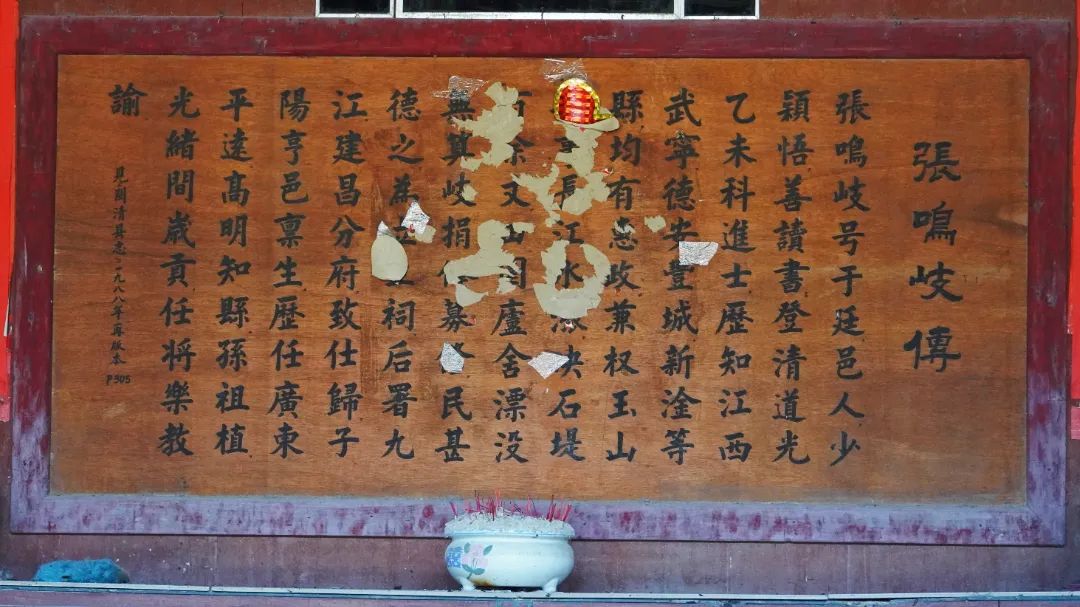 張鳴岐傳
張鳴岐号于廷邑人少
穎悟善讀書登清道光
乙未科進士歷知江西
武寧德安豐城新淦等
縣均有惠政兼权玉山
事長江水決石堤
余廬舍漂没
無算岐捐募民甚
德之為祠后署九
江建昌分府致仕歸子
陽亨邑稟生歷任廣東
平逵高明知縣孫祖植
光緒間歲貢任将樂教
諭
見閩清县志一九八八年再版本 P305